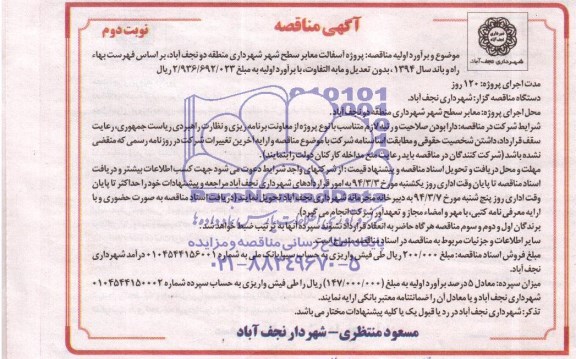 آگهی مناقصه
نوبت دوم
شهرداری نجف آباد
موضوع و برآورد اولیه مناقصه: پروژه آسفالت معابر سطح شهر شهرداری منطقه دو نجف آباد، بر اساس فهرست بهاء
راه و باند سال ۱۳۹۴، بدون تعدیل و مابه التفاوت، با برآورد اولیه به مبلغ ۲/۹۳۶/۶۹۲/۰۲۳ ریال
مدت اجرای پروژه: ۱۲۰ روز
دستگاه مناقصه گزار: شهرداری نجف آباد.
محل اجرای پروژه: معابر سطح شهر شهرداری منطقه دو نجف آباد.
شرایط شرکت در مناقصه: دارا بودن صلاحیت و رتبه لازم متناسب با نوع پروژه از معاونت برنامه ریزی و نظارت راهبردی ریاست جمهوری، رعایت
سقف قرارداد، داشتن شخصیت حقوقی و مطابقت اساسنامه شرکت با موضوع مناقصه و ارایه آخرین تغییرات شرکت در روزنامه رسمی که منقضی
نشده باشد (شرکت کنندگان در مناقصه باید رعایت منع مداخله کارکنان دولت را بنمایند).
مهلت و محل دریافت و تحویل اسناد مناقصه و پیشنهاد قیمت: از شرکتهای واجد شرایط دعوت می شود جهت کسب اطلاعات بیشتر و دریافت
اسناد مناقصه تا پایان وقت اداری روز یکشنبه مورخ ۹۴/۳/۳ به امور قراردادهای شهرداری نجف آباد مراجعه و پیشنهادات خود را حداکثر تا پایان
وقت اداری روز پنج شنبه مورخ ۹۴/۳/۷ به دبیرخانه محرمانه شهرداری نجف آباد تحویل نمایند (دریافت اسناد مناقصه به صورت حضوری و با
ارایه معرفی نامه کتبی، با مهر و امضاء مجاز و تعهدآور شرکت انجام می گیرد).
برندگان اول و دوم و سوم مناقصه هرگاه حاضر به انعقاد قرارداد نشوند سپرده آنها به ترتیب ضبط خواهد شد.
سایر اطلاعات و جزئیات مربوط به مناقصه در اسناد مناقصه مندرج است.
مبلغ فروش اسناد مناقصه: مبلغ ۲۰۰/۰۰۰ ریال طی فیش واریزی به حساب سیبا بانک ملی به شماره ۰۱۰۴۵۴۴۱۵۶۰۰۱ درآمد شهرداری
میزان سپرده: معادل ۵ درصد برآورد اولیه به مبلغ (۱۴۷/۰۰۰/۰۰۰) ریال را طی فیش واریزی به حساب سپرده شماره ۰۱۰۴۵۴۴۱۵۰۰۰۲
شهرداری نجف آباد و یا معادل آن را ضمانتنامه معتبر بانکی ارایه نمایند.
تذکر: شهرداری نجف آباد در رد یا قبول یک یا کلیه پیشنهادات مختار می باشد.
مسعود منتظری - شهردار نجف آباد
پایگاه اطلاع رسانی مناقصه و مزایده
۰۲۱-۸۸۳۴۹۶۷۰-۵